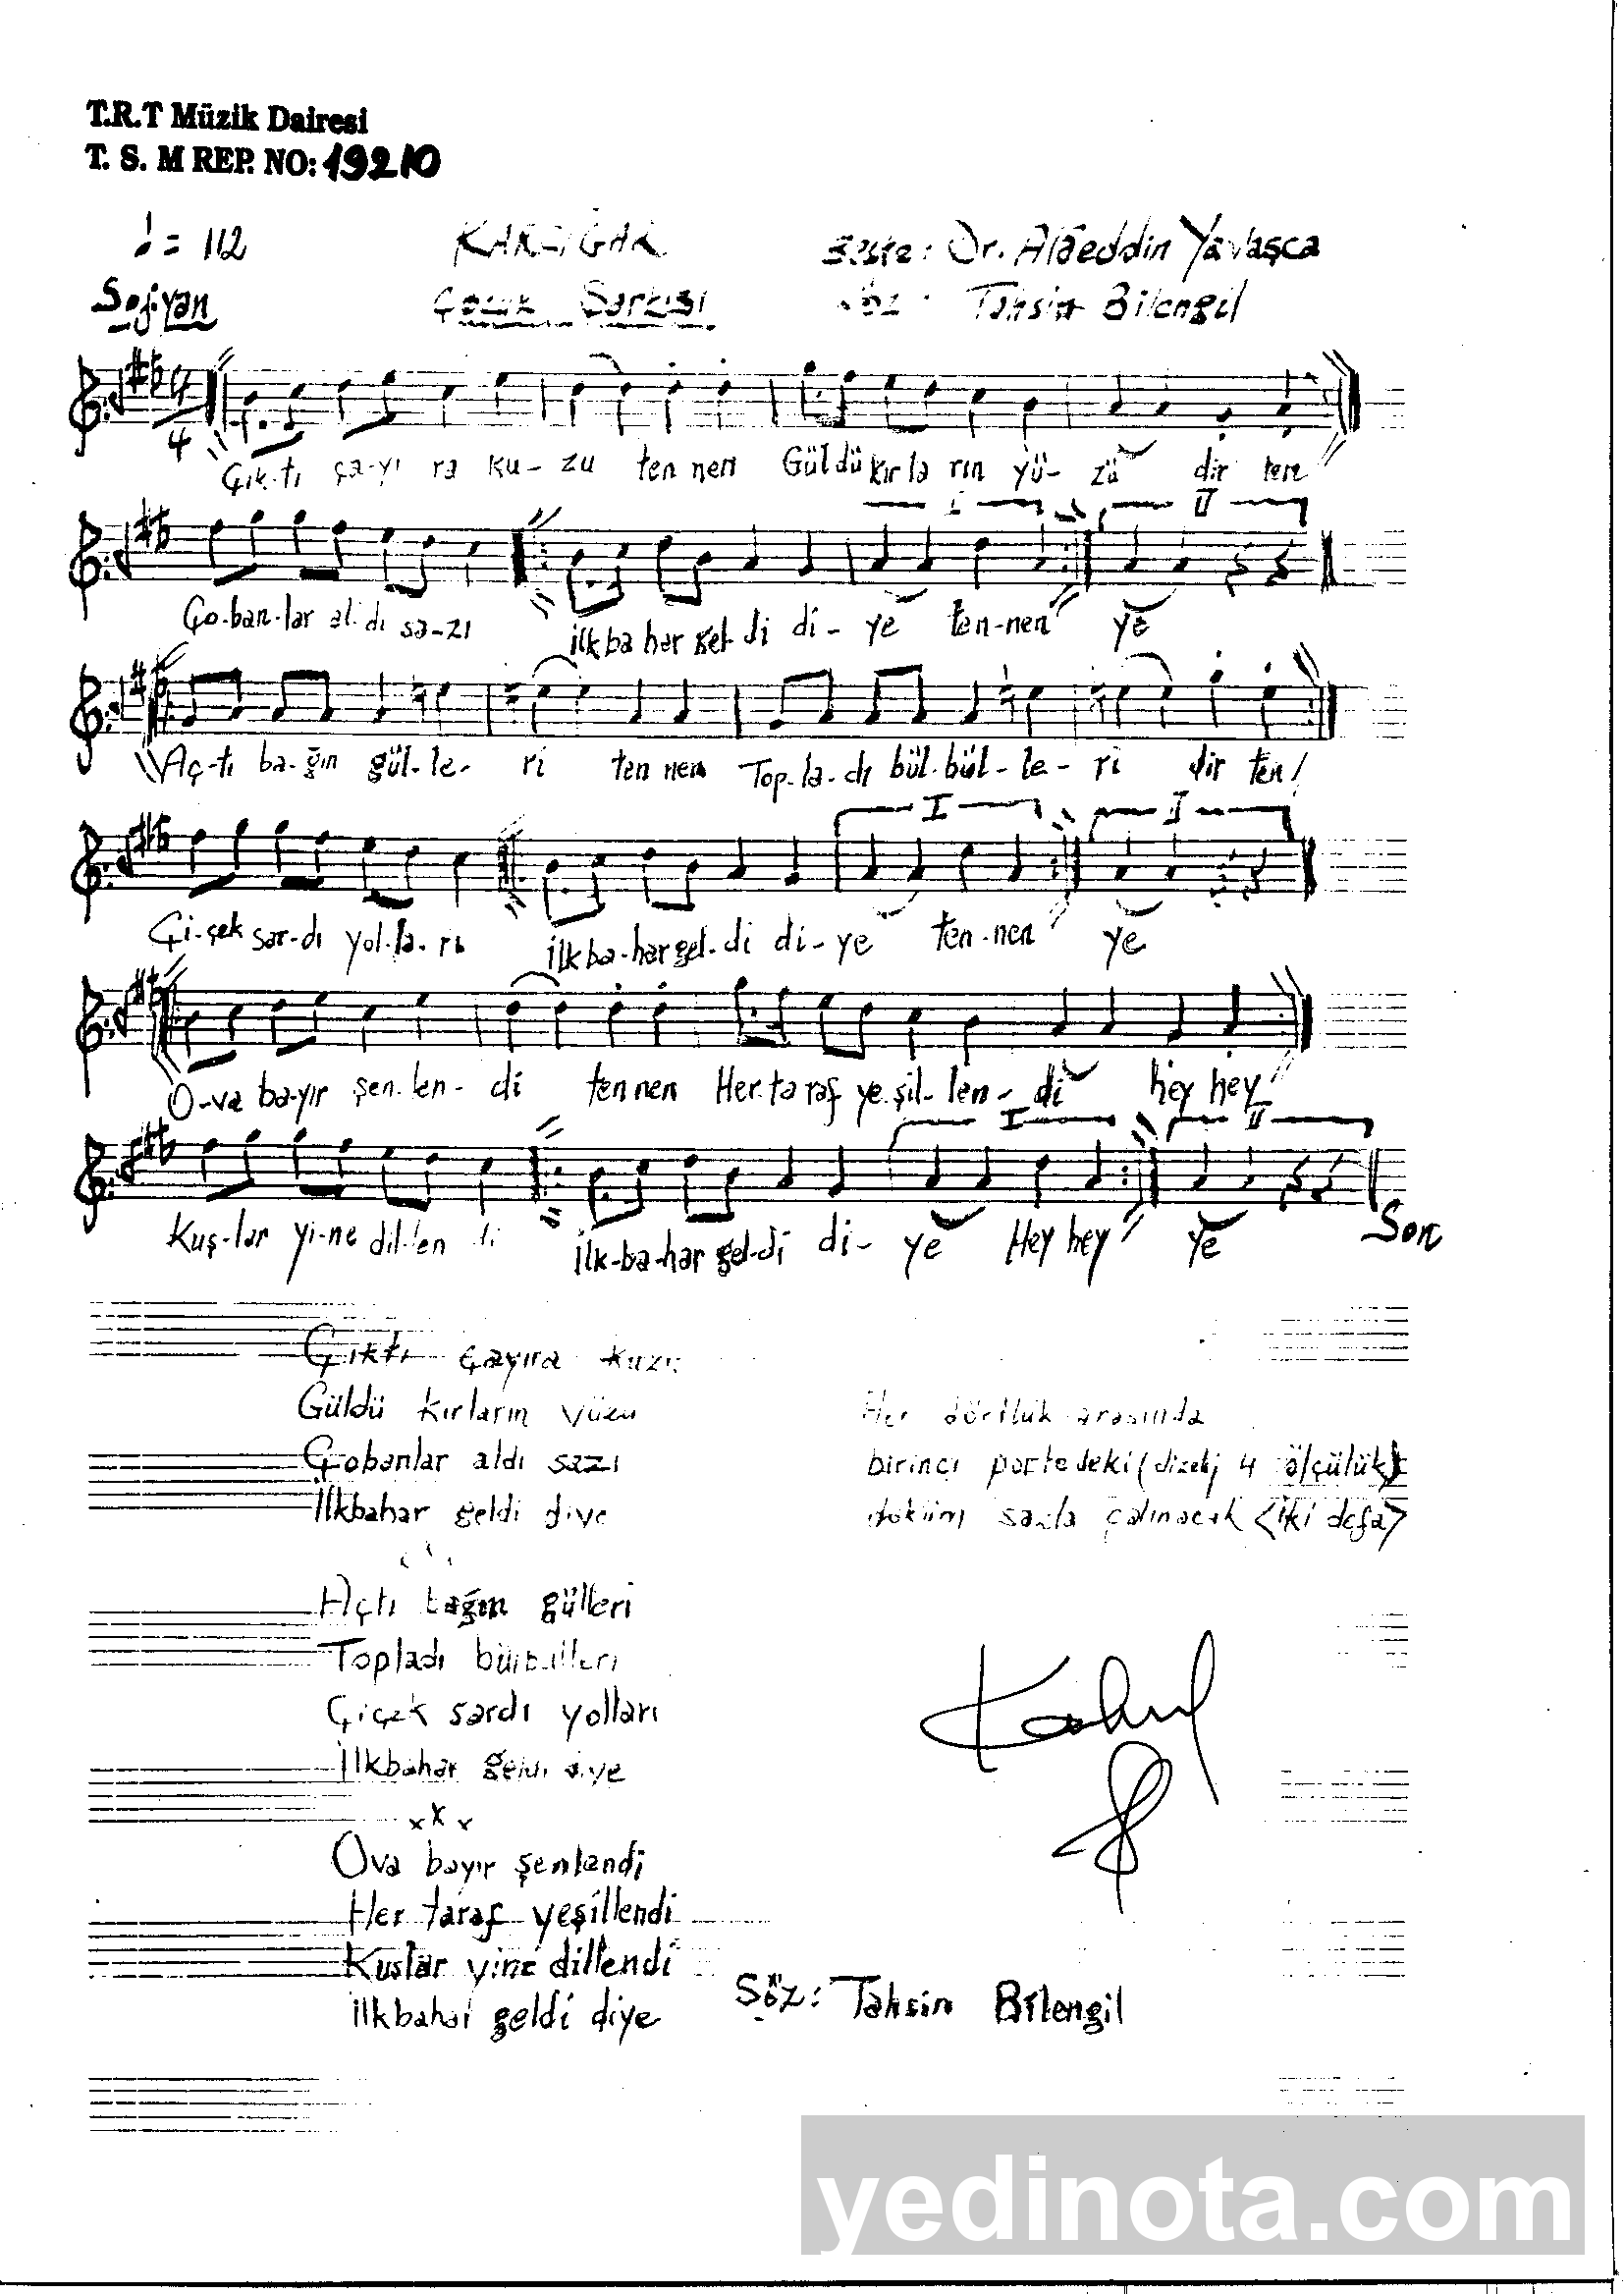 T.R.T Müzik Dairesi
T. S. M REP. NO: 19210
♩ = 112 KARCIĞAR Beste: Dr. Alâeddin Yavaşca
Sofiyan Çocuk Şarkısı Söz: Tahsin Bilengil
4
4
Çık-tı ça-yı ra ku-zu ten nen Güldü kırla rın yü-zü dir ten
I II
Ço-ban-lar al-dı sa-zı ilk ba har gel di di-ye ten-nen ye
Aç-tı ba-ğın gül-le-ri ten nen Top-la-dı bül-bül-le-ri dir ten
I II
Çi-çek sar-dı yol-la-rı ilk ba-har gel-di di-ye ten-nen ye
O-va ba-yır şen-len-di ten nen Her ta raf ye şil-len-di hey hey
I II
Kuş-lar yi-ne dil-len di ilk-ba-har gel-di di-ye Hey hey ye Son
Çıktı çayıra kuzu
Güldü kırların yüzü
Çobanlar aldı sazı
İlkbahar geldi diye
Her dörtlük arasında
birinci portedeki (dizek) 4 ölçülük
sazla çalınacak <iki defa>
Açtı bağın gülleri
Topladı bülbülleri
Çiçek sardı yolları
İlkbahar geldi diye
x x x
Ova bayır şenlendi
Her taraf yeşillendi
Kuşlar yine dillendi
İlkbahar geldi diye
Söz: Tahsin Bilengil
yedinota.com